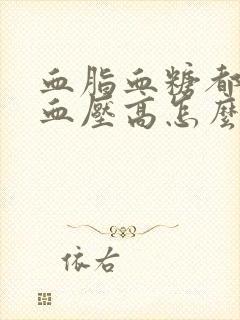 血脂血糖都
血壓高怎麼
依右